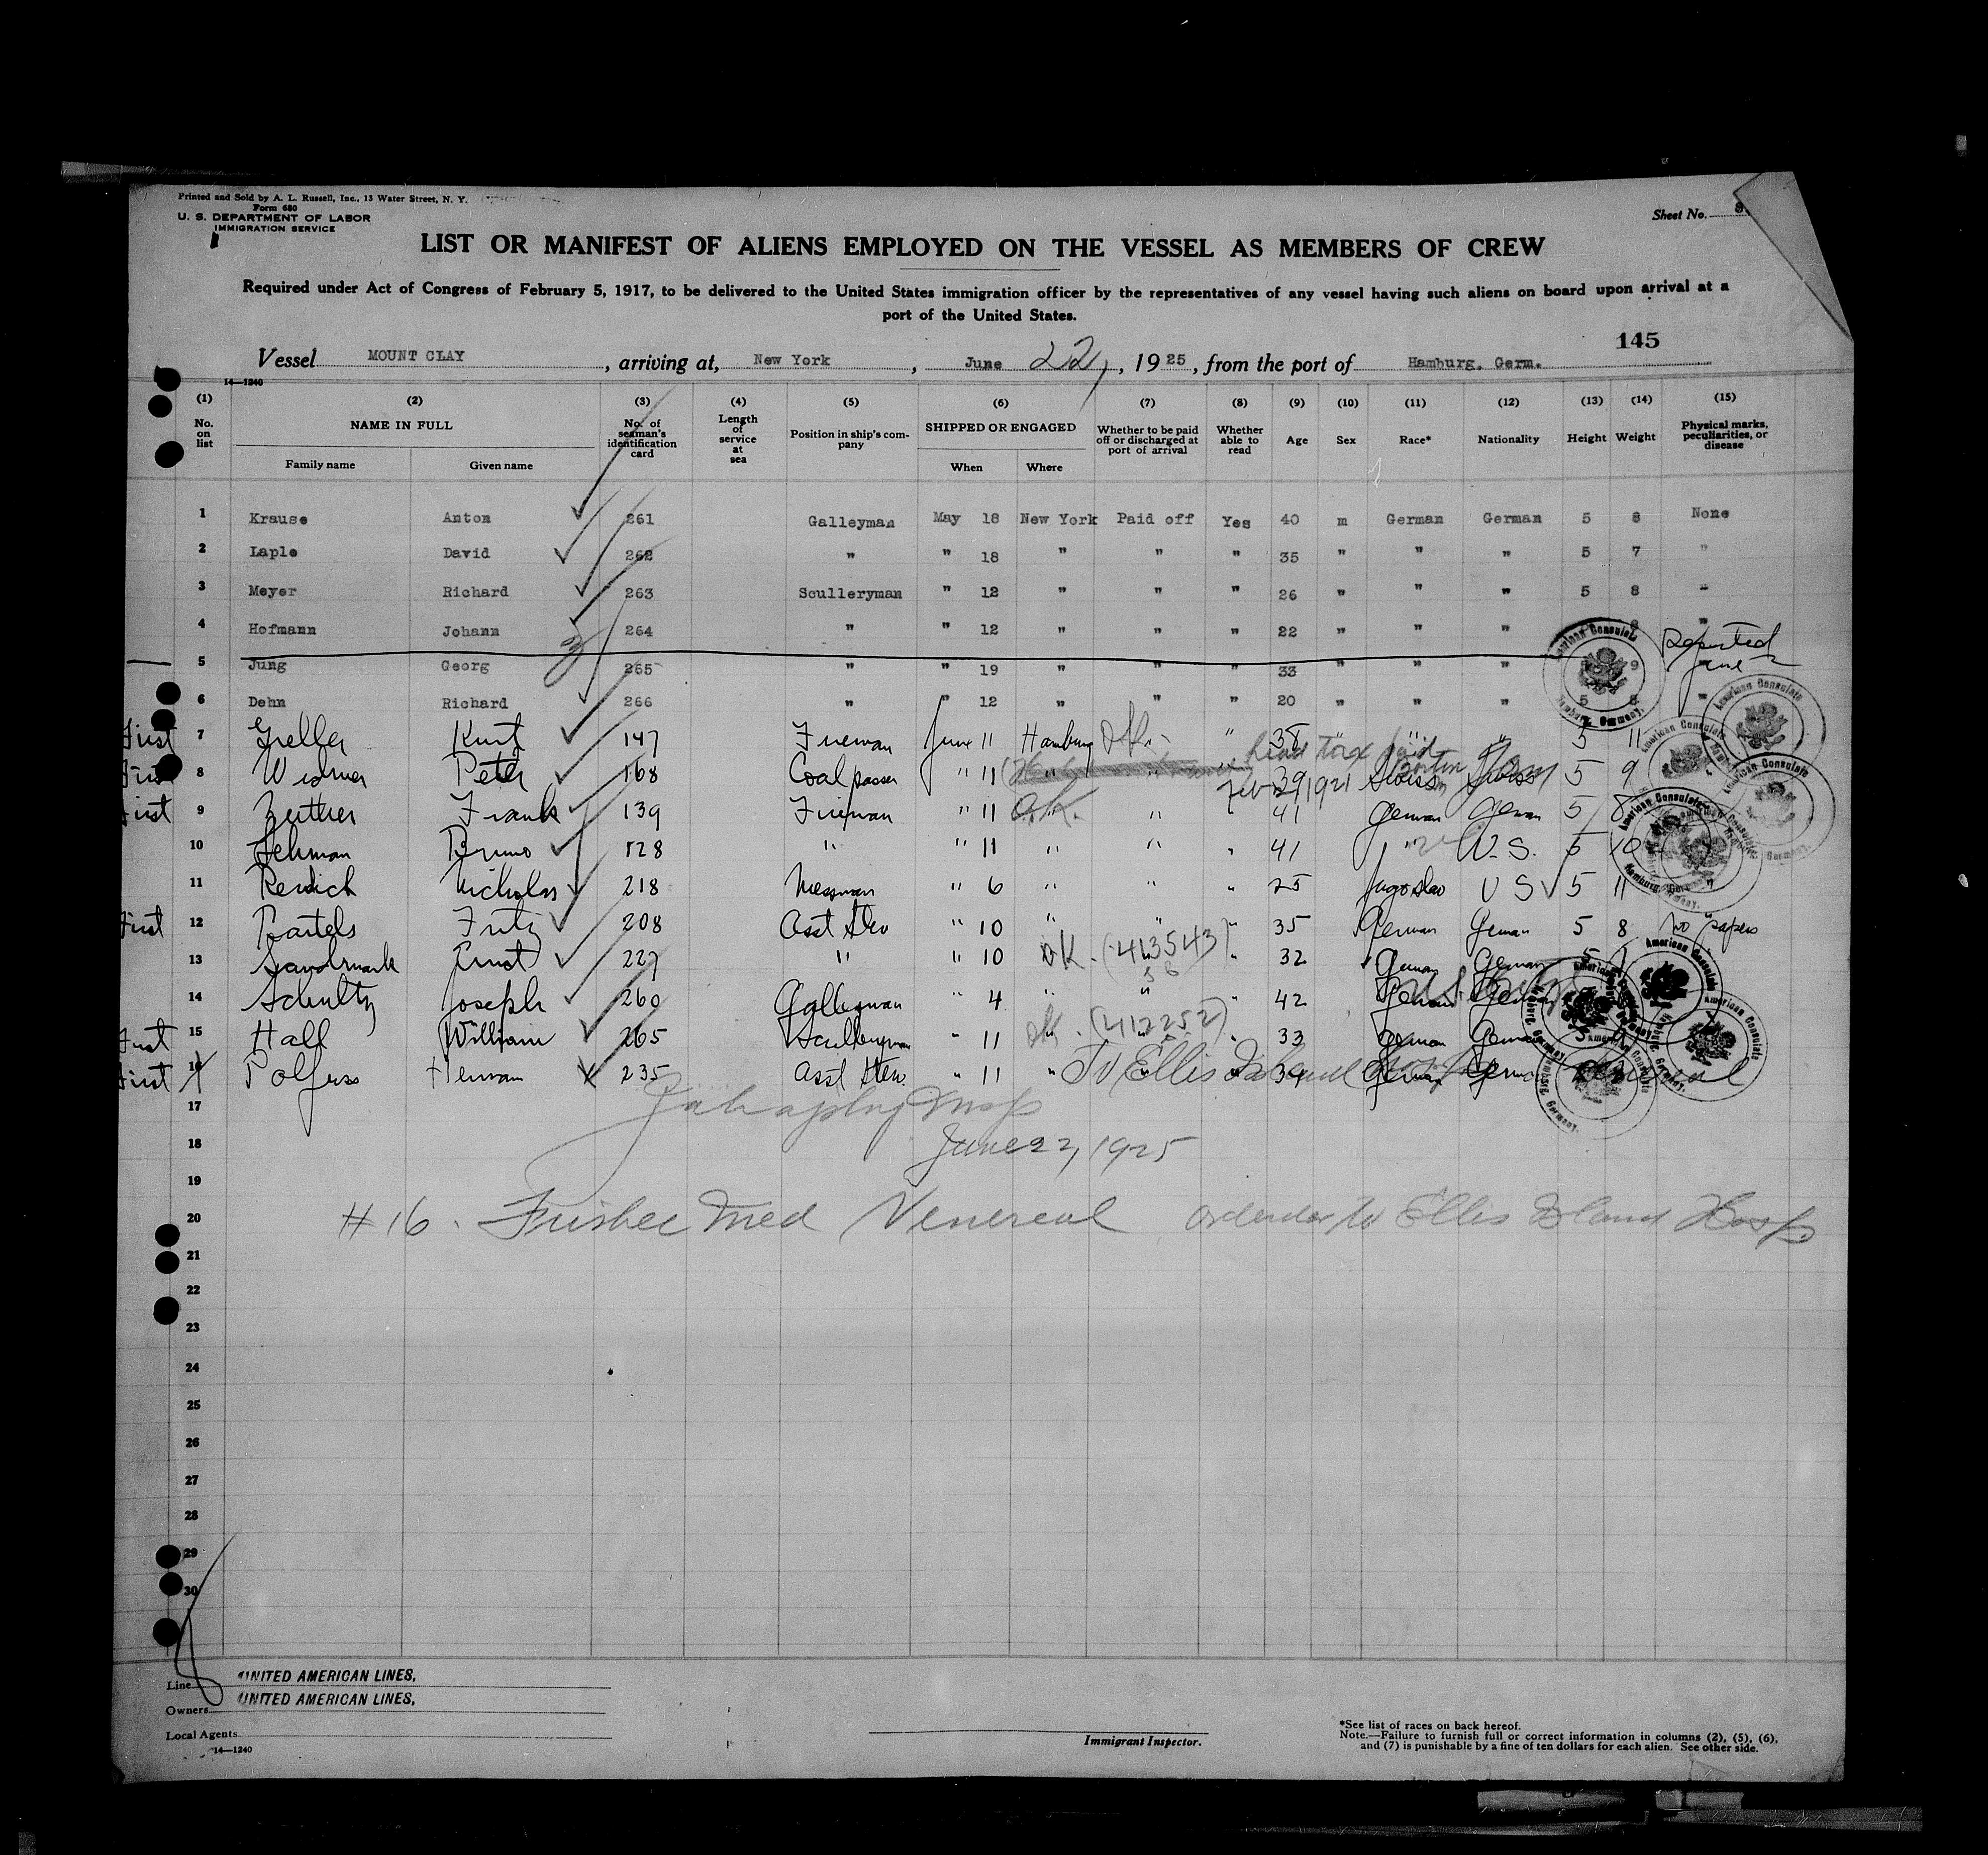 Printed and Sold by A. L. Russell, Inc., 13 Water Street, N. Y.
Form 680
U. S. DEPARTMENT OF LABOR
IMMIGRATION SERVICE
Sheet No. 8
LIST OR MANIFEST OF ALIENS EMPLOYED ON THE VESSEL AS MEMBERS OF CREW
Required under Act of Congress of February 5, 1917, to be delivered to the United States immigration officer by the representatives of any vessel having such aliens on board upon arrival at a
port of the United States.
145
Vessel MOUNT CLAY, arriving at, New York, June 22, 1925, from the port of Hamburg, Germ.
14—1240
(1) (2) (3) (4) (5) (6) (7) (8) (9) (10) (11) (12) (13) (14) (15)
No. on list NAME IN FULL Family name Given name No. of seaman's identification card Length of service at sea Position in ship's company SHIPPED OR ENGAGED When Where Whether to be paid off or discharged at port of arrival Whether able to read Age Sex Race* Nationality Height Weight Physical marks, peculiarities, or disease
1 Krause Anton 261 Galleyman May 18 New York Paid off Yes 40 m German German 5 8 None
2 Laple David 262 " " 18 " " " 35 " " " 5 7 "
3 Meyer Richard 263 Sculleryman " 12 " " " 26 " " " 5 8 "
4 Hofmann Johann 264 " " 12 " " " 22 " " " "
5 Jung Georg 265 " " 19 " " " 33 " " " 9 Deported June 2
6 Dehn Richard 266 " " 12 " " " 20 " " " 5 8 "
First 7 Greller Kurt 147 Fireman June 11 Hamburg " 38 " " 5 11
head tax paid
First 8 Widmer Peter 168 Coal passer " 11 " " 39 Swiss Swiss 5 9
Feb 1921
First 9 Frank 139 Fireman " 11 O.K. " " 41 German German 5 8
10 Lehman Bruno 128 " " 11 " " " 41 " U.S. 5 10
11 Nicholas 218 Messman " 6 " " " 25 Jugoslav U S 5 11
First 12 Bartels Fritz 208 Asst Stew " 10 " " " 35 German German 5 8 no papers
13 Ernst 227 " " 10 OK (413543) " 32 German German 5
14 Schultz Joseph 260 Galleyman " 4 " " " 42 German
First 15 Hall William 265 Sculleryman " 11 OK (412252) " 33 German German
First 16 Herman 235 Asst Stew. " 11 " To Ellis Island 34 German
17
18 June 22, 1925
19
20 #16. Med Venereal ordered to Ellis Island Hosp
21
22
23
24
25
26
27
28
29
30
American Consulate Hamburg, Germany.
Line UNITED AMERICAN LINES,
Owners UNITED AMERICAN LINES,
Local Agents
14—1240
Immigrant Inspector.
*See list of races on back hereof.
Note.—Failure to furnish full or correct information in columns (2), (5), (6),
and (7) is punishable by a fine of ten dollars for each alien. See other side.